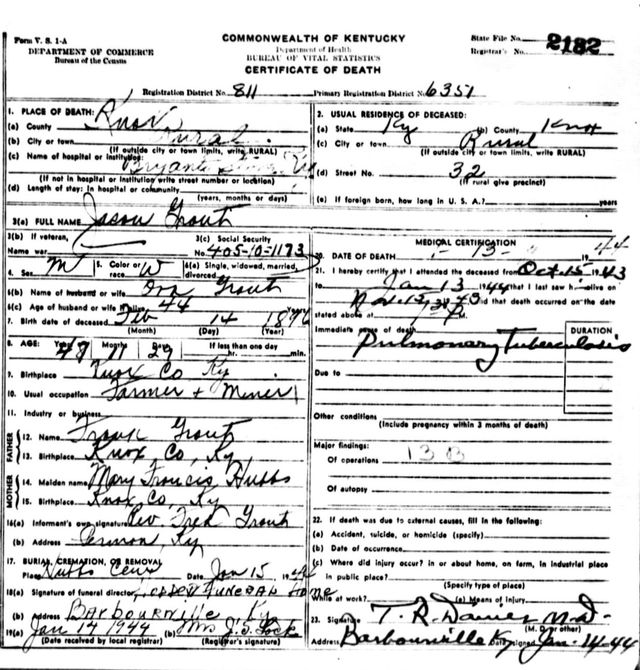 Form V. S. 1-A
DEPARTMENT OF COMMERCE
Bureau of the Census
COMMONWEALTH OF KENTUCKY
Department of Health
BUREAU OF VITAL STATISTICS
CERTIFICATE OF DEATH
State File No. 2182
Registrar's No.
Registration District No. 811 Primary Registration District No. 6351
1. PLACE OF DEATH:
(a) County Knox
(b) City or town Rural
(If outside city or town limits, write RURAL)
(c) Name of hospital or institution:
(If not in hospital or institution write street number or location)
(d) Length of stay: In hospital or community
(years, months or days)
2. USUAL RESIDENCE OF DECEASED:
(a) State Ky (b) County Knox
(c) City or town Rural
(If outside city or town limits, write RURAL)
(d) Street No. 32
(If rural give precinct)
(e) If foreign born, how long in U. S. A.? years
3(a) FULL NAME Jason Grout
3(b) If veteran,
Name war
3(c) Social Security
No. 405-10-1173
4. Sex M 5. Color or race W 6(a) Single, widowed, married, divorced
6(b) Name of husband or wife Grout
6(c) Age of husband or wife if alive 44
7. Birth date of deceased Feb 14
(Month) (Day) (Year)
8. AGE: Years Months Days If less than one day
11 29 hr. min.
9. Birthplace Knox Co Ky.
10. Usual occupation Farmer + Miner
11. Industry or business
FATHER
12. Name Frank Grout
13. Birthplace Knox Co, Ky,
MOTHER
14. Maiden name Mary Francis Hubbs
15. Birthplace Knox Co, Ky
16(a) Informant's own signature Rev Fred Grout
(b) Address Ky
17. BURIAL, CREMATION, OR REMOVAL
Place Hubbs Cem Date Jan 15 1944
18(a) Signature of funeral director FUNERAL HOME
(b) Address BARBOURVILLE Ky
19(a) Jan 17 1944 (b) Mrs J. S. Lock
(Date received by local registrar) (Registrar's signature)
MEDICAL CERTIFICATION
20. DATE OF DEATH 1-13 1944
21. I hereby certify that I attended the deceased from Oct 15 1943
to Jan 13 1944 that I last saw h alive on
and that death occurred on the date
stated above at
Immediate cause of death DURATION
Pulmonary Tuberculosis
Due to
Other conditions
(Include pregnancy within 3 months of death)
Major findings:
Of operations 13B
Of autopsy
22. If death was due to external causes, fill in the following:
(a) Accident, suicide, or homicide (specify)
(b) Date of occurrence
(c) Where did injury occur? in or about home, on farm, in industrial place
in public place?
(Specify type of place)
While at work? (e) Means of injury
23. Signature T. R. Davies M.D.
(M. D. or other)
Address Barbourville Ky Date signed Jan-14-44